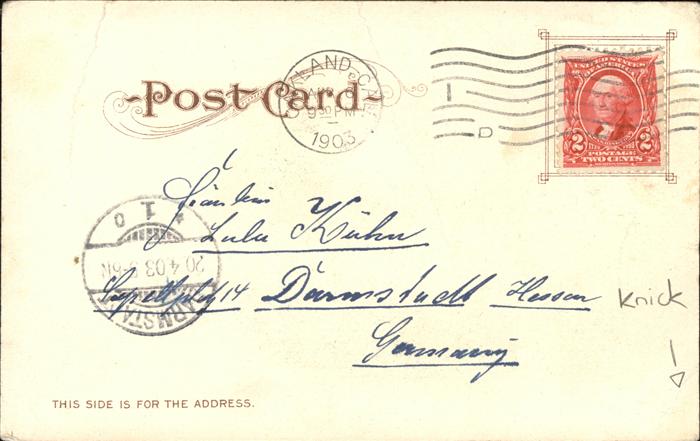 Post Card
OAKLAND, CAL.
9 30 PM
1903
D
UNITED STATES
OF AMERICA
2 2
POSTAGE
TWO CENTS
Fräulein
Lulu Kühn
14 Darmstadt Hessen
Germany
Knick
DARMSTA
20.4.03
* 1 0
THIS SIDE IS FOR THE ADDRESS.